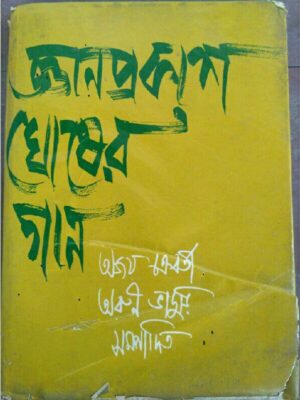 জ্ঞানপ্রকাশ
ঘোষের
গান
অজয় চক্রবর্তী
অরুণ ভাদুড়ি
সম্পাদিত